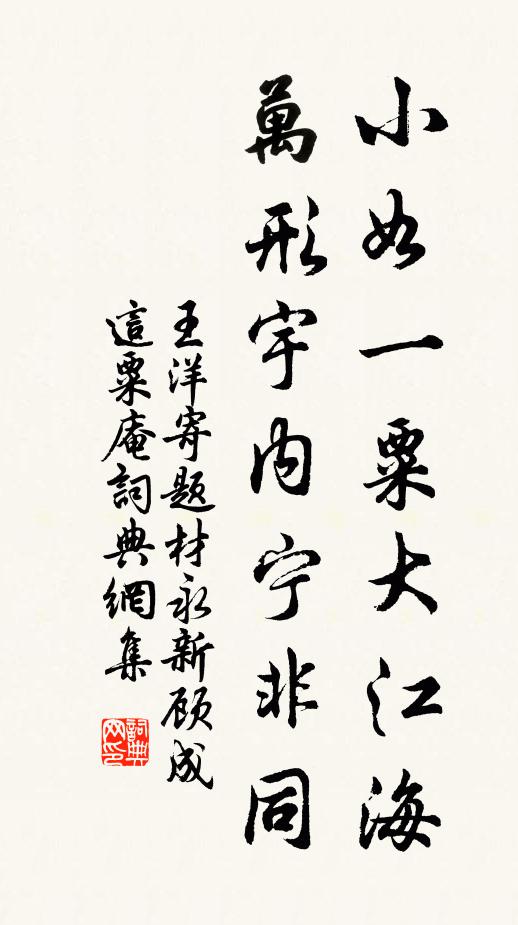 小如一粟大江海
萬形宇内宁非同
王洋寄題材永新顾成
這粟庵詞典網集
詞典网印